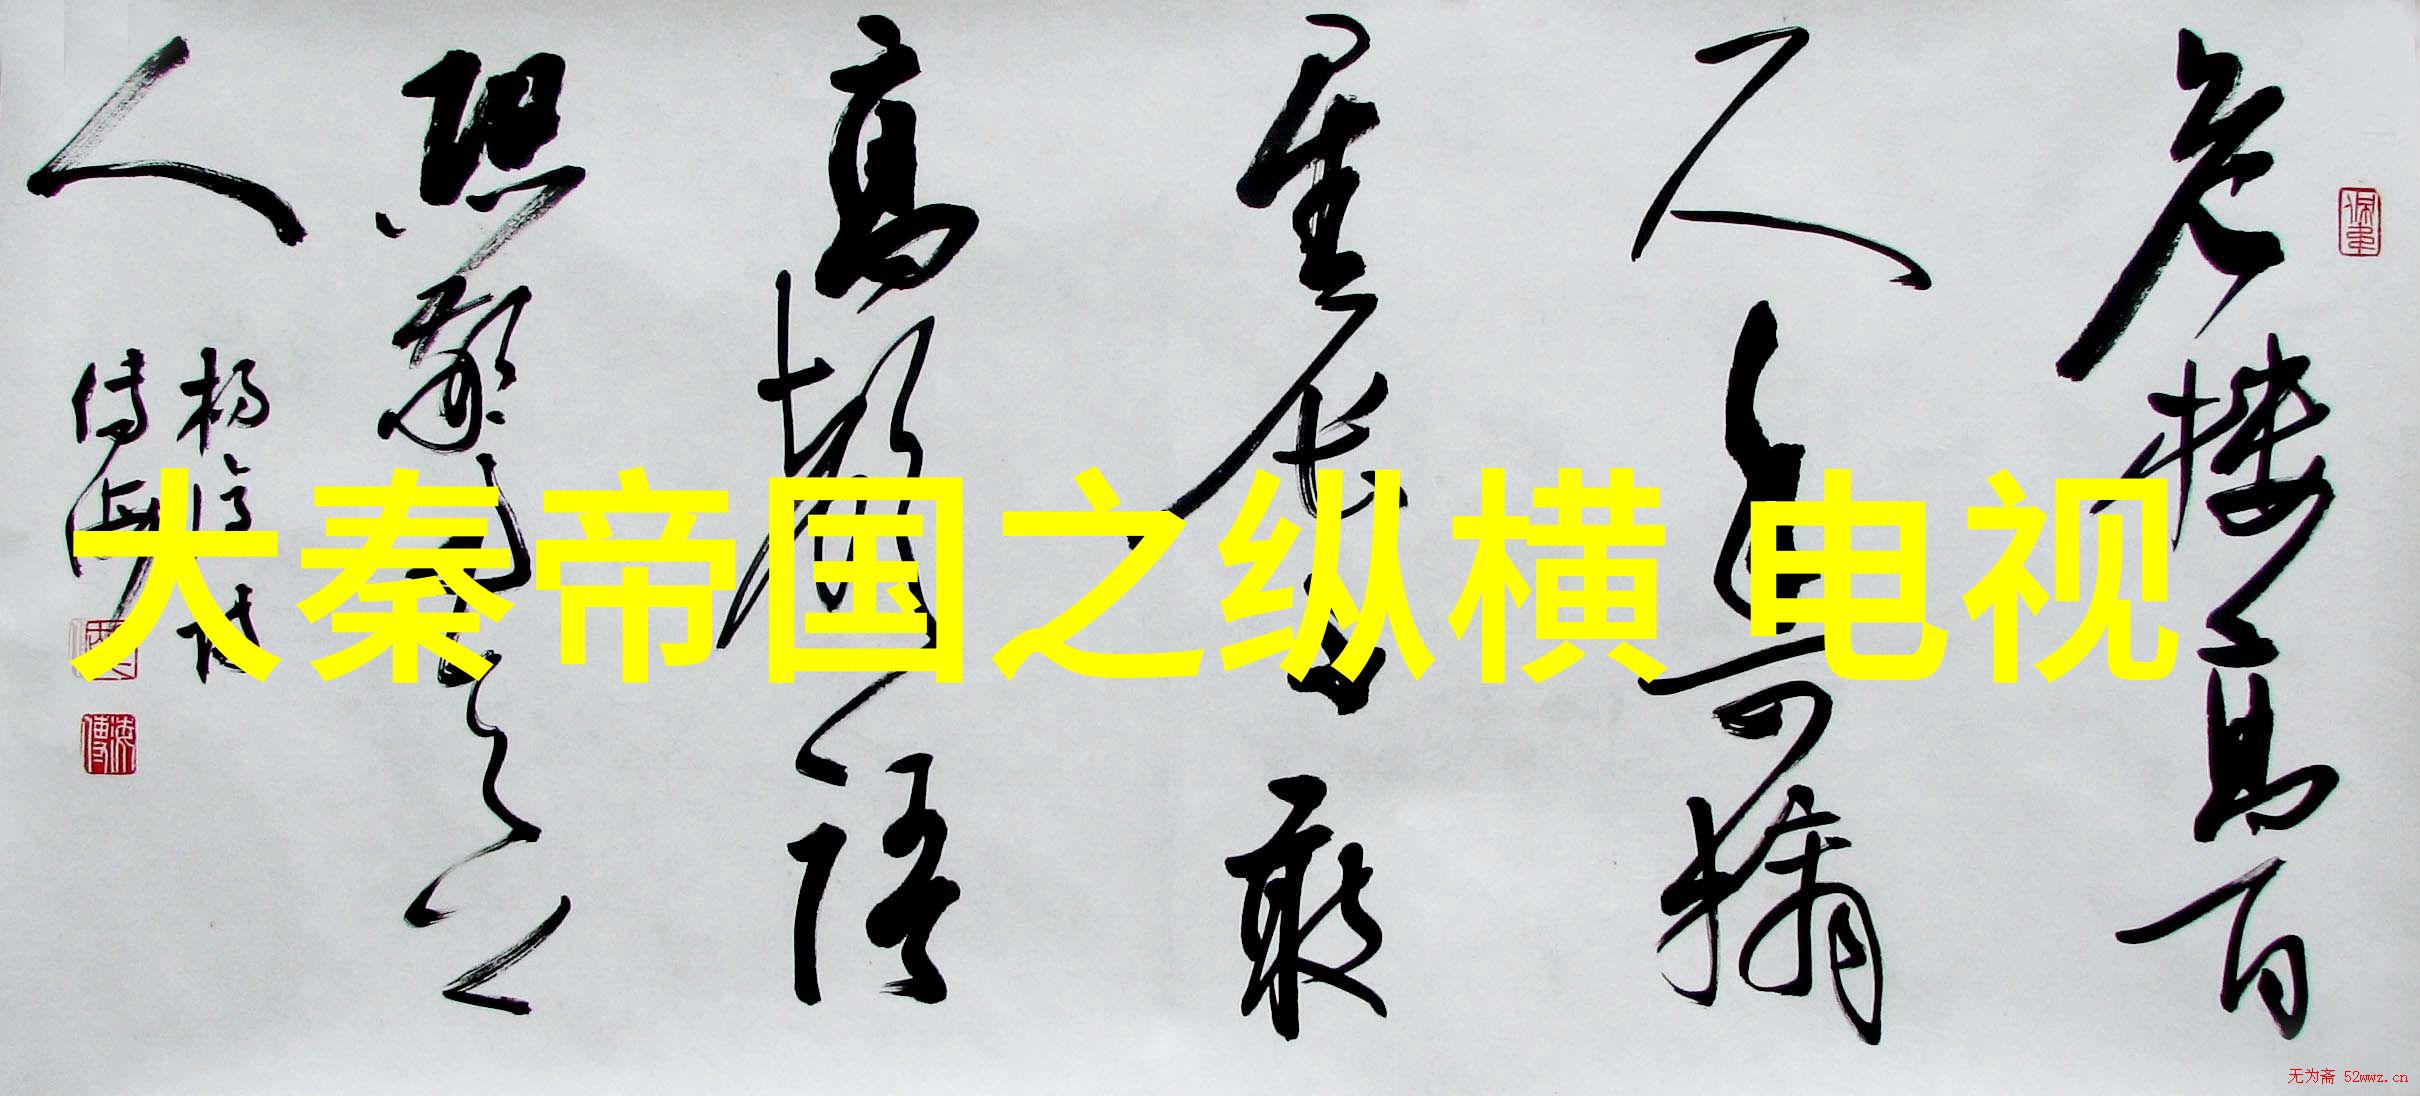 危楼高百
尺手可摘
星辰不敢
高声语
恐惊天上
人
大秦帝国之纵横 电视
无为斋 52wwz.cn